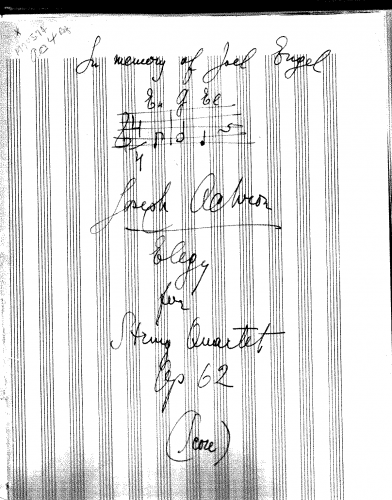 In memory of Joel Engel
En g El
4
4
Joseph Achron
Elegy
for
String Quartet
Op 62
(Score)